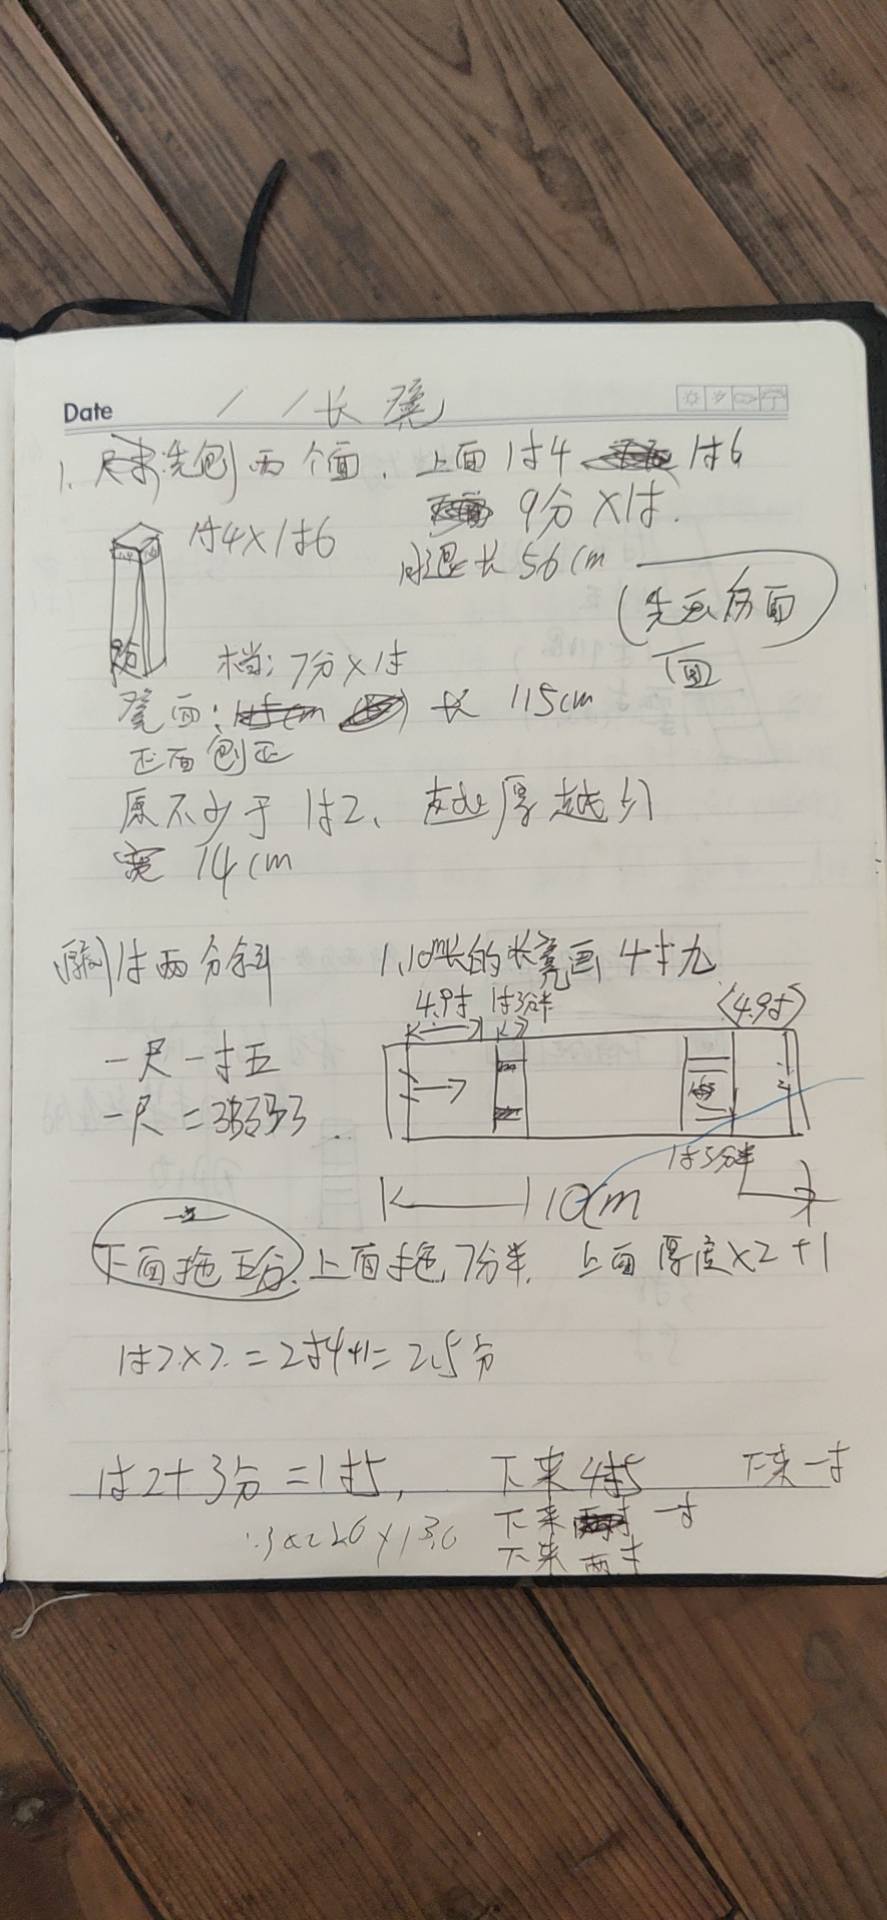 Date / / 长凳
1. 先刨两个面、上面1寸4 1寸6
9分×1寸.
1寸4×1寸6
腿长56cm
(先画伤面
面
档:7分×1寸
凳面: 长 115cm
正面刨正
厚不少于1寸2、越厚越
宽 14cm
1寸两分斜
1.10m长的长凳画4寸九
4.9寸 1寸3分半
(4.9寸)
一尺一寸五
一尺=
1寸3分半
下面拖五分. 上面拖7分半. 上面厚度×2+1
1寸2×2=2寸4+1=2.5分
1寸2+3分=1寸5,
下来4寸5
下来一寸
下来 一寸
下来两寸